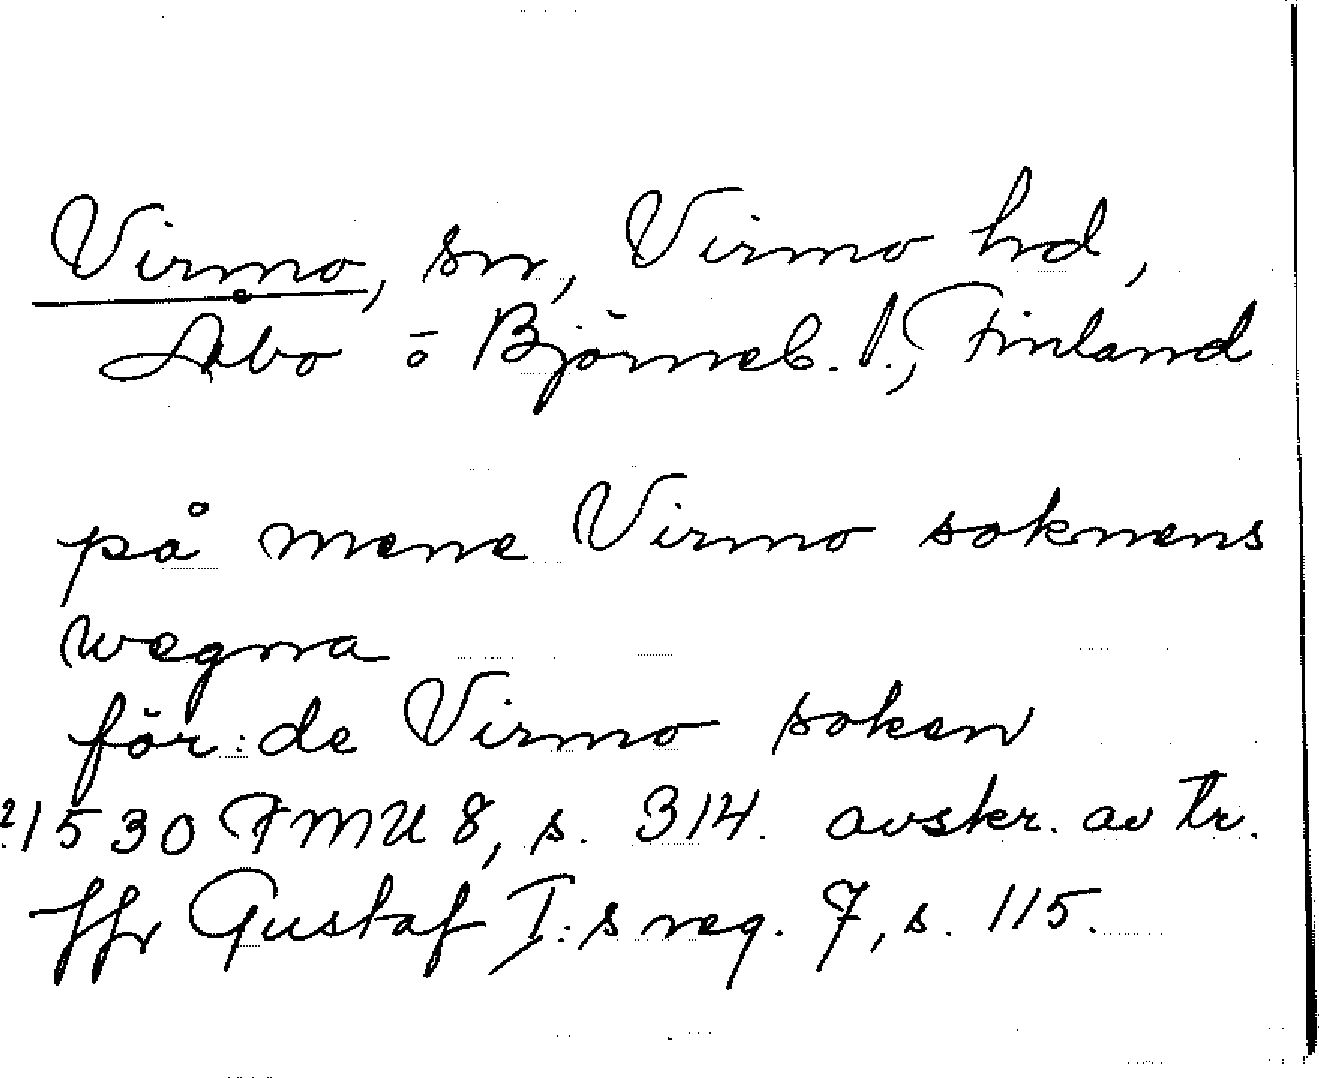 Virmo, sn, Virmo hd,
Åbo o Björneb. l., Finland
på mene Virmo soknens
wegna
för: de Virmo soken
1530 FMU 8, s. 314. avskr. av tr.
ffr Gustaf I:s reg. 7, s. 115.